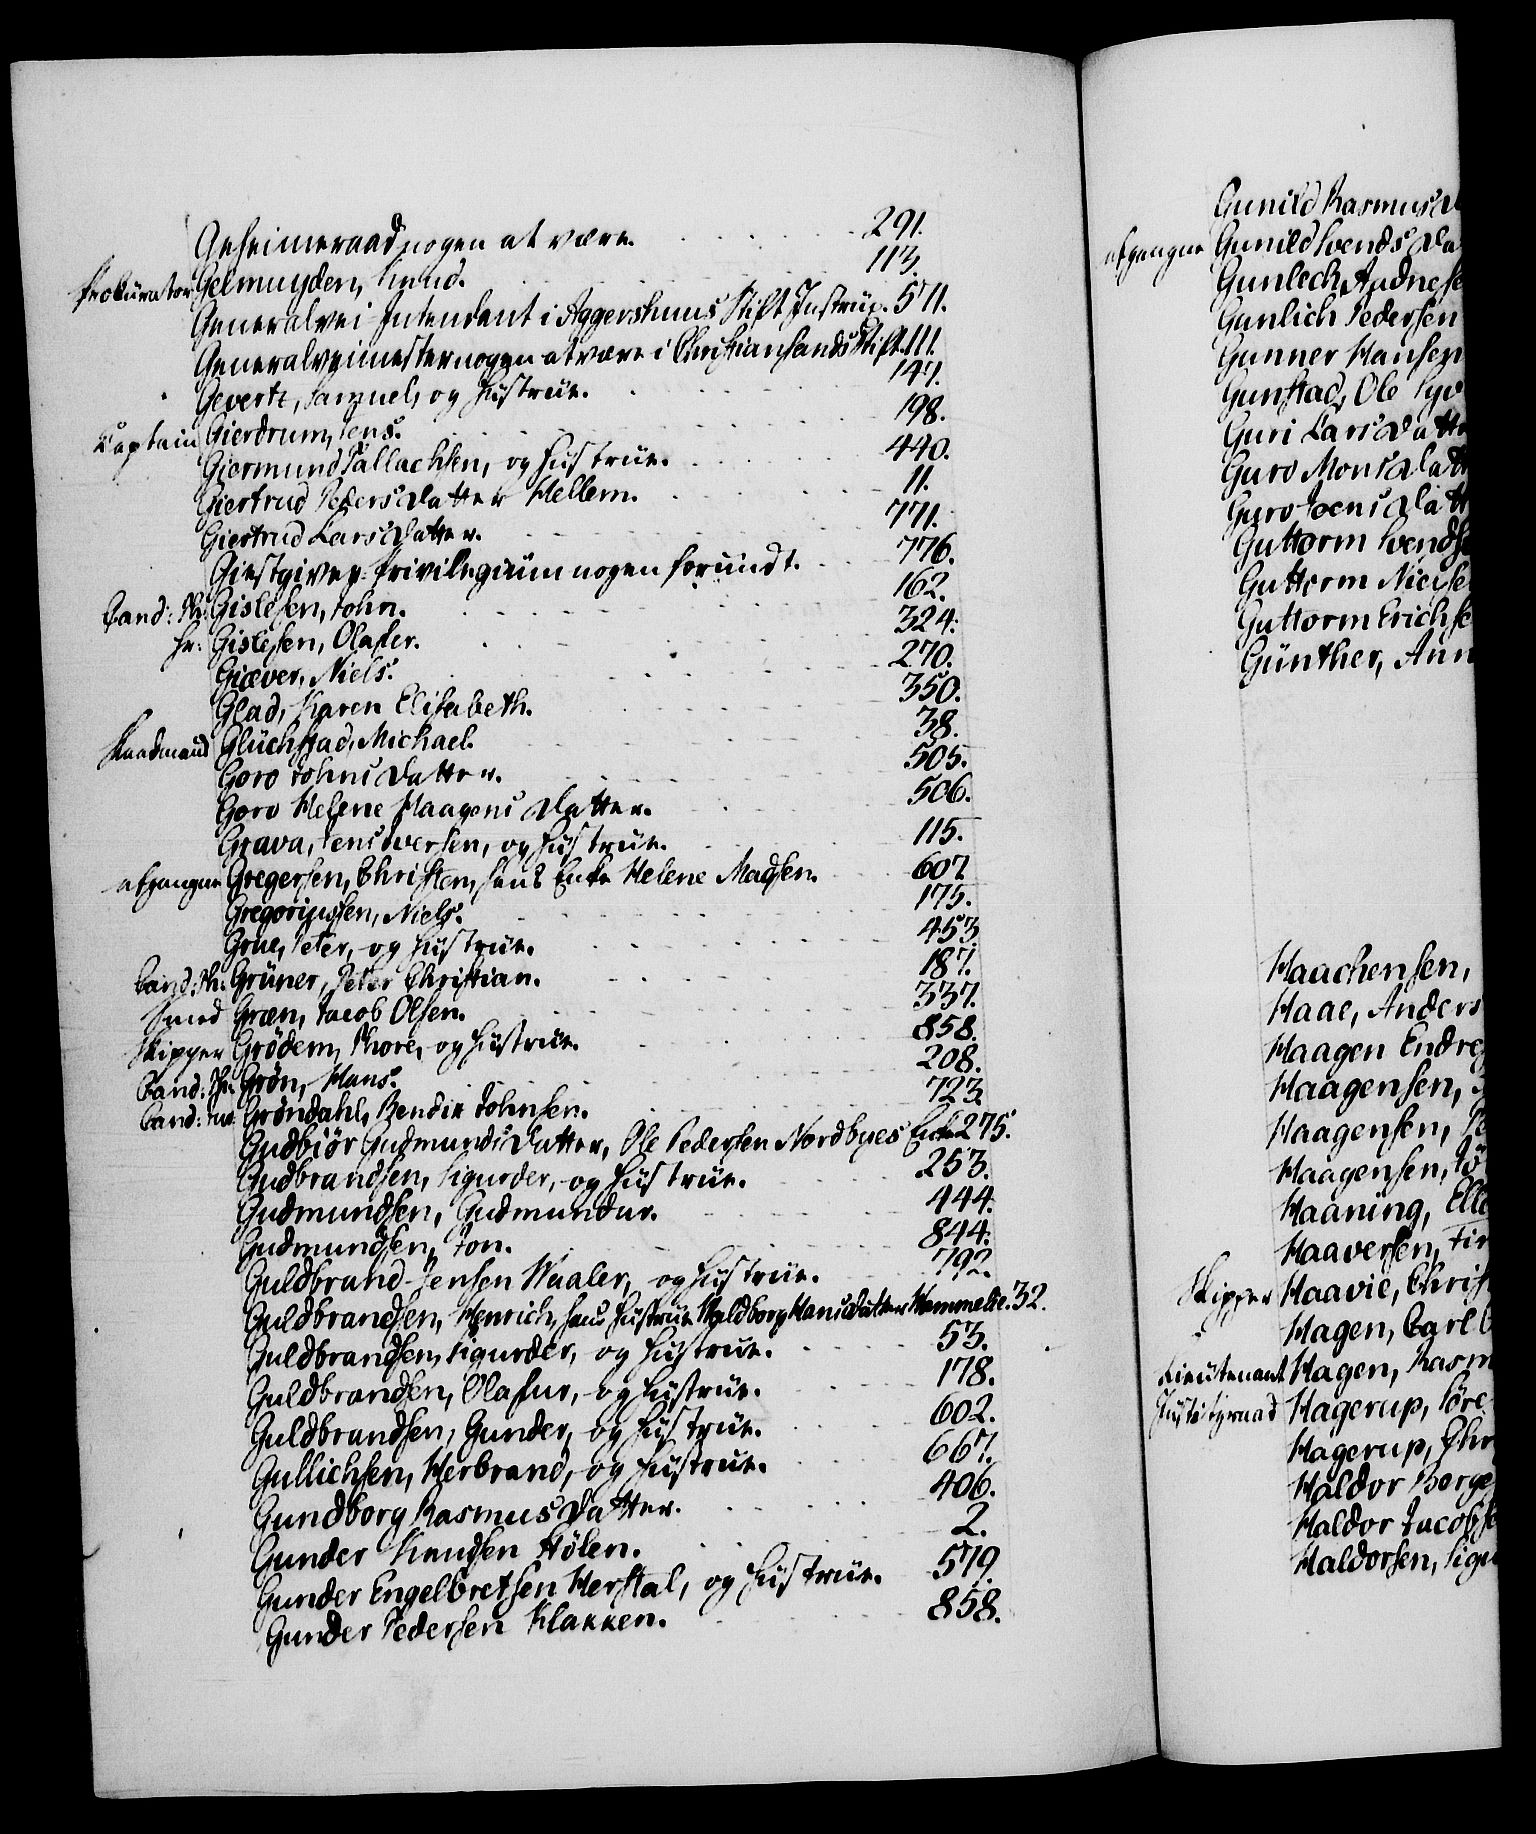 Geheimeraad nogen at være. 291.
Prokurator Gelmuyden, Knud. 113.
Generalvei-Intendant i Aggershuus Stift Instrux. 511.
Generalveimester nogen at være i Christiansands Stift. 111.
Gevertz, Samuel, og Hustrue. 147.
Captain Gierdrum, Jens. 198.
Giermund Tallachsen, og Hustrue. 440.
Giertrud Peders Datter Hellem. 11.
Giertrud Lars Datter. 771.
Giestgiver-Privilegium nogen forundt. 776.
Cand: Ph: Gislesen, John. 162.
Hr: Gislesen, Olafer. 324.
Giæver, Niels. 270.
Glad, Karen Elisabeth. 350.
Raadmand Glückstad, Michael. 38.
Goro Johns Datter. 505.
Goro Helene Haagens Datter. 506.
Grava, Jens Iversen, og Hustrue. 115.
afgangne Gregersen, Christen, hans Enke Helene Madsen. 607
Gregoriussen, Niels. 175.
Grue, Peter, og Hustrue. 453
Cand: Ph: Grüner, Peter Christian. 187.
Smed Græn, Jacob Olsen. 337.
Skipper Grödem, Thore, og Hustrue. 858.
Cand: Ph: Grøn, Hans. 208.
Cand: Gröndahl, Bendix Johnsen. 723
Gudbiör Gudmunds Datter, Ole Pedersen Nordbyes Enke 275.
Gudbrandsen, Sigurder, og Hustrue. 253.
Gudmundsen, Gudmundur. 444.
Gudmundsen, Jon. 844.
Guldbrand Jensen Waaler, og Hustrue. 792.
Guldbrandsen, Henrich, hans Hustrue Waldborg Hans Datter Hemmelie. 32.
Guldbrandsen, Sigurder, og Hustrue. 53.
Guldbrandsen, Olafur, og Hustrue. 178.
Guldbrandsen, Gunder, og Hustrue. 602.
Gullichsen, Herbrand, og Hustrue. 667.
Gundborg Rasmus Datter. 406.
Gunder Knudsen Hölen. 2.
Gunder Engelbretsen Herstal, og Hustrue. 579.
Gunder Pedersen Klakken. 858.
Gunild Rasmus D
afgangne Gunild Svends Da
Gunlech Andrese
Gunlich Pedersen
Gunner Hansen
Gunstad, Ole Syv
Guri Lars Datte
Guro Mons Datt
Guro Joens Datt
Guttorm Svends
Guttorm Nielse
Guttorm Erichse
Günther, Ann
Haachensen,
Haae, Anders
Haagen Endre
Haagensen,
Haagensen, Pe
Haagensen, Tö
Haaning, Elle
Haaversen, Tir
Skipper Haavie, Chris
Hagen, Carl
Lieutenant Hagen, Rasm
Justitzraad Hagerup, Söre
Hagerup, Chr
Haldor Berge
Haldor Jacobse
Haldorsen, Sigu